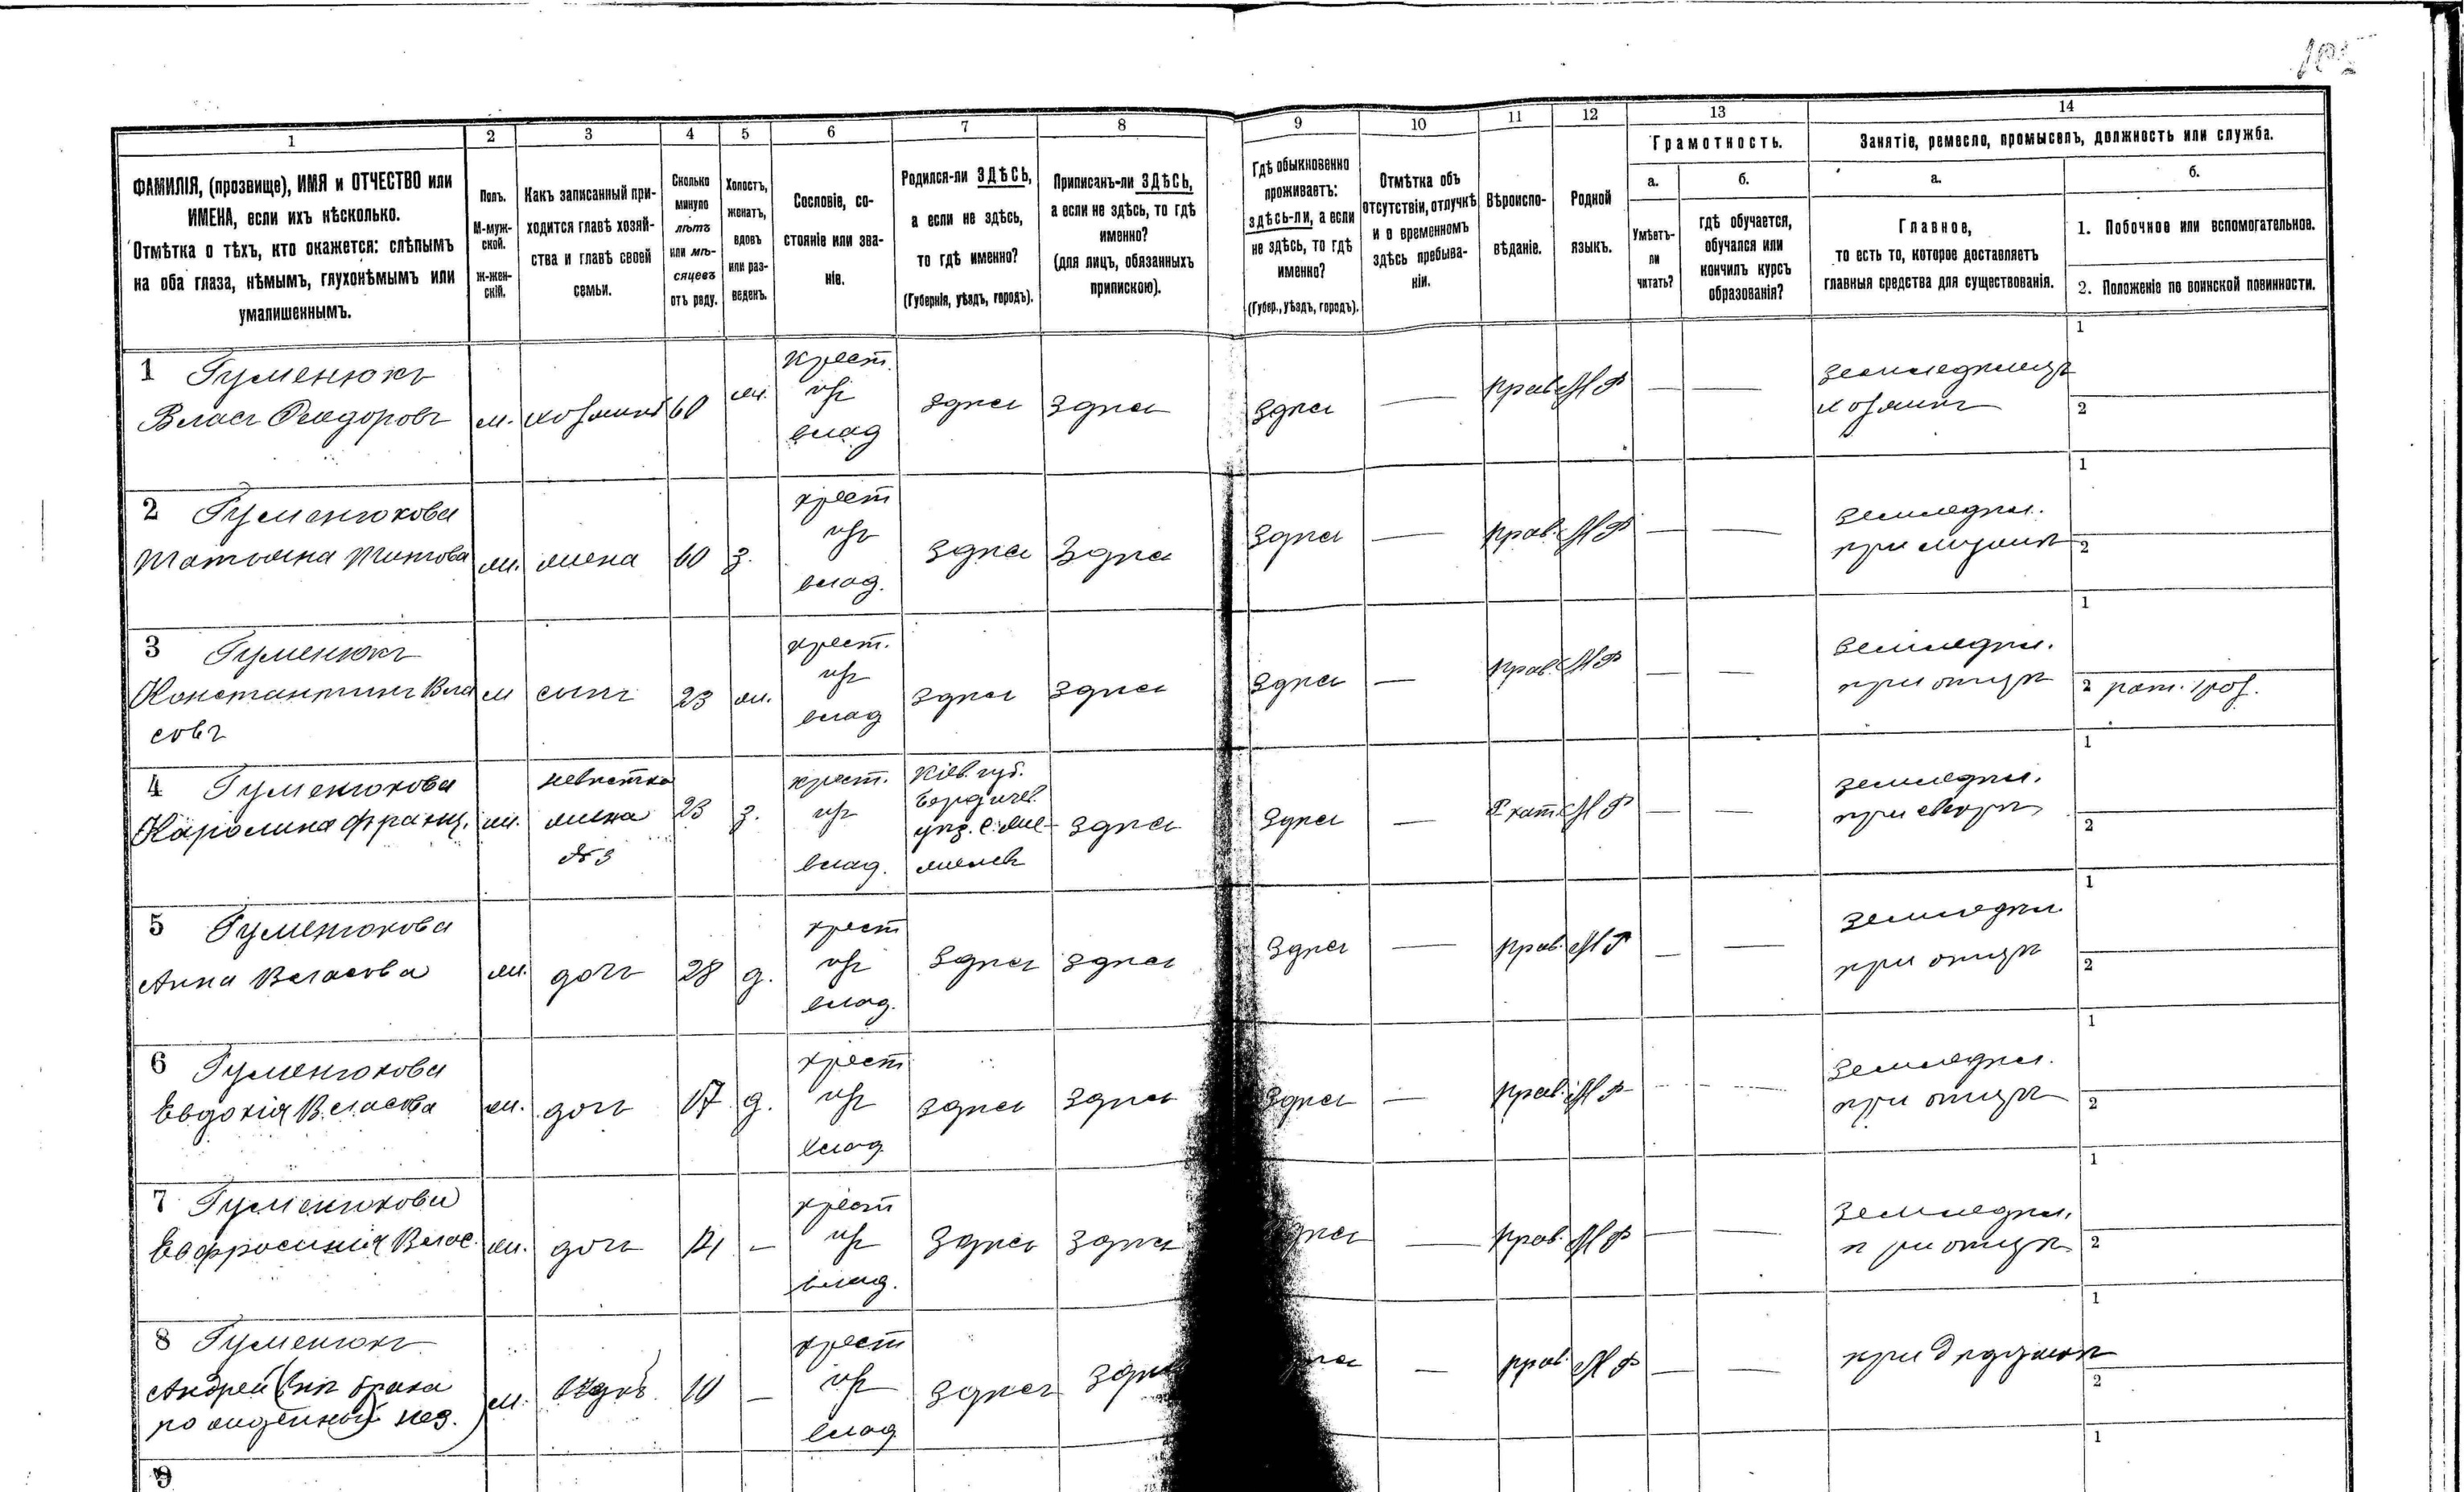 105
1
2
3
4
5
6
7
8
9
10
11
12
13
14
ФАМИЛІЯ, (прозвище), ИМЯ и ОТЧЕСТВО или
ИМЕНА, если ихъ нѣсколько.
Отмѣтка о тѣхъ, кто окажется: слѣпымъ
на оба глаза, нѣмымъ, глухонѣмымъ или
умалишеннымъ.
Полъ.
М-муж-
ской.
Ж-жен-
скій.
Какъ записанный при-
ходится главѣ хозяй-
ства и главѣ своей
семьи.
Сколько
минуло
лѣтъ
или мѣ-
сяцевъ
отъ роду.
Холостъ,
женатъ,
вдовъ
или раз-
веденъ.
Сословіе, со-
стояніе или зва-
ніе.
Родился-ли ЗДѢСЬ,
а если не здѣсь,
то гдѣ именно?
(Губернія, уѣздъ, городъ).
Приписанъ-ли ЗДѢСЬ,
а если не здѣсь, то гдѣ
именно?
(для лицъ, обязанныхъ
припискою).
Гдѣ обыкновенно
проживаетъ:
здѣсь-ли, а если
не здѣсь, то гдѣ
именно?
(Губер., уѣздъ, городъ).
Отмѣтка объ
отсутствіи, отлучкѣ
и о временномъ
здѣсь пребыва-
ніи.
Вѣроиспо-
вѣданіе.
Родной
языкъ.
Грамотность.
а.
Умѣетъ-
ли
читать?
б.
гдѣ обучается,
обучался или
кончилъ курсъ
образованія?
Занятіе, ремесло, промыселъ, должность или служба.
а.
Главное,
то есть то, которое доставляетъ
главныя средства для существованія.
б.
1. Побочное или вспомогательное.
2. Положеніе по воинской повинности.
1 Гуменюкъ
Власъ Ѳеодоровъ
м. хозяинъ 60 ж.
крест.
изъ
влад
здѣсь здѣсь здѣсь — прав. М Р — —
земледѣлецъ
хозяинъ
1
2
2 Гуменюкова
Татьяна Титова
ж. жена 60 з.
крест
изъ
влад.
здѣсь здѣсь здѣсь — прав. М Р — —
земледѣл.
при мужѣ
1
2
3 Гуменюкъ
Константинъ Вла
совъ
м сынъ 23 ж.
крест.
изъ
влад
здѣсь здѣсь здѣсь — прав. М Р — —
земледѣл.
при отцѣ
1
2 рат. 1 раз.
4 Гуменюкова
Каролина Франц.
ж.
невѣстка
жена
№ 3
23 з.
крест.
изъ
влад.
Кіев. губ.
Бердичев.
уѣз.
здѣсь здѣсь — Р. кат. М Р — —
земледѣл.
при свекрѣ
1
2
5 Гуменюкова
Анна Власова
ж. дочь 28 д.
крест
изъ
влад.
здѣсь здѣсь здѣсь — прав. М Р — —
земледѣл
при отцѣ
1
2
6 Гуменюкова
Евдокія Власова
ж. дочь 17 д.
крест
изъ
влад
здѣсь здѣсь здѣсь — прав. М Р — —
земледѣл.
при отцѣ
1
2
7 Гуменюкова
Евфросинія Влас.
ж. дочь 14 —
крест
изъ
влад.
здѣсь здѣсь здѣсь — прав. М Р — —
земледѣл.
при отцѣ
1
2
8 Гуменюкъ
Андрей (внѣ брака
нез.)
м. внукъ 10 —
крест
изъ
влад
здѣсь здѣсь — прав. М Р — —
при дѣдушкѣ
1
2
9
1